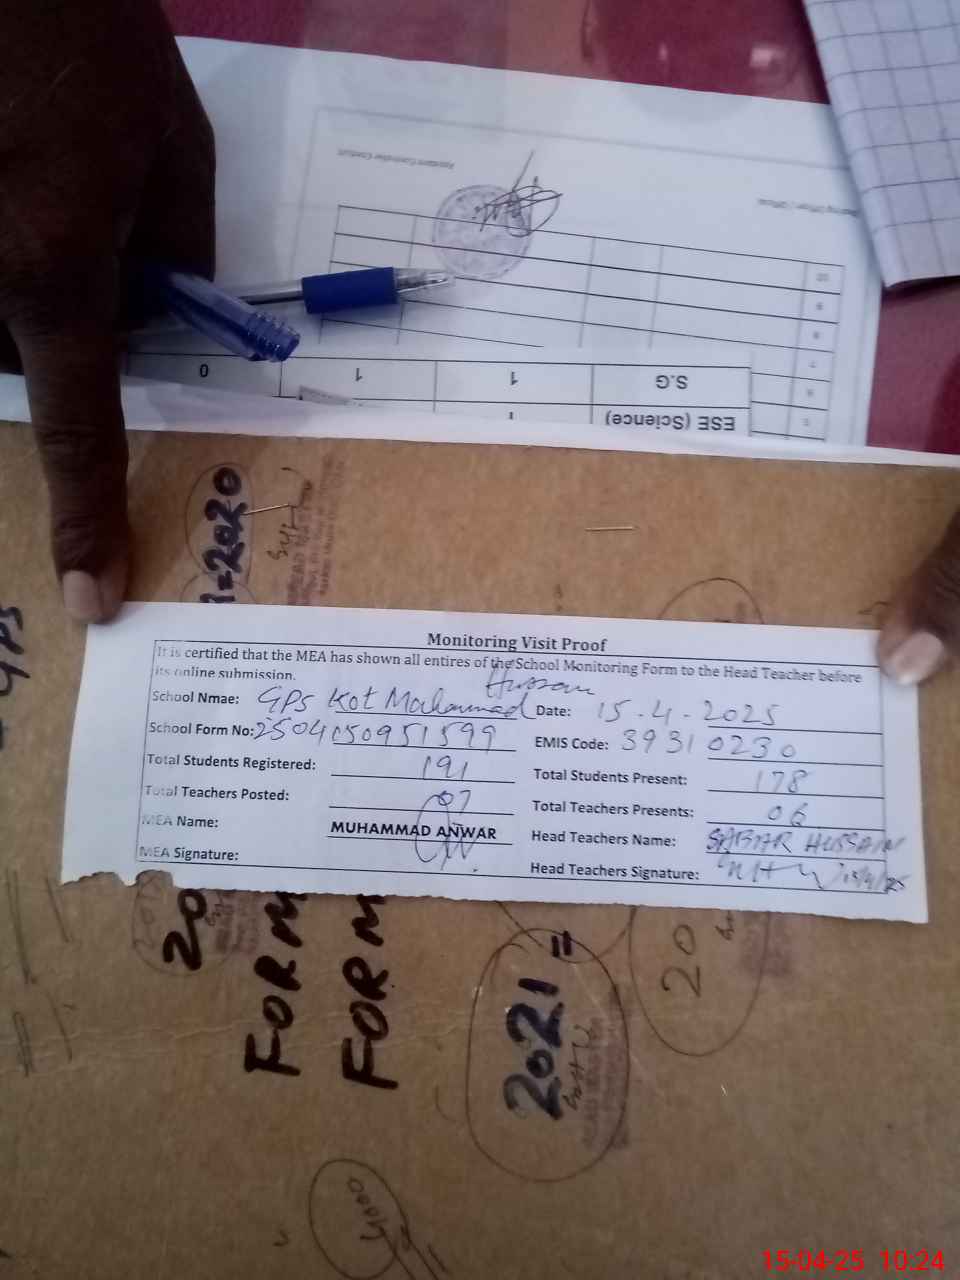 S.G
1
1
0
ESE (Science)
2020
GPS
Monitoring Visit Proof
It is certified that the MEA has shown all entires of the School Monitoring Form to the Head Teacher before
its online submission.
School Nmae: GPS Kot Mohammad Hussan Date: 15-4-2025
School Form No: 2504050951599 EMIS Code: 39310230
Total Students Registered: 191 Total Students Present: 178
Total Teachers Posted: 07 Total Teachers Presents: 06
MEA Name: MUHAMMAD ANWAR Head Teachers Name: SABAR HUSSAIN
MEA Signature: Head Teachers Signature: 15/4/25
20
FORM
FORM
2021 =
20
15-04-25 10:24